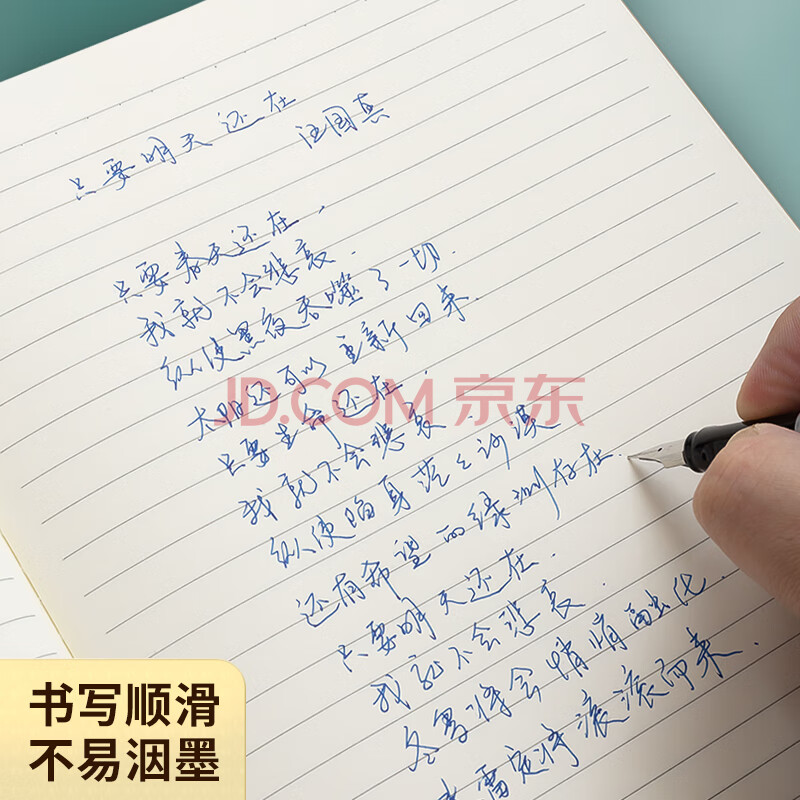 只要明天还在
汪国真
只要春天还在，
我就不会悲哀．
纵使黑夜吞噬了一切．
太阳还可以重新回来．
只要生命还在．
我就不会悲哀．
纵使陷身茫茫沙漠
还有希望的绿洲存在．
只要明天还在．
我就不会悲哀．
冬雪将会悄悄融化．
春雷定将滚滚而来．
JD.COM 京东
书写顺滑
不易洇墨